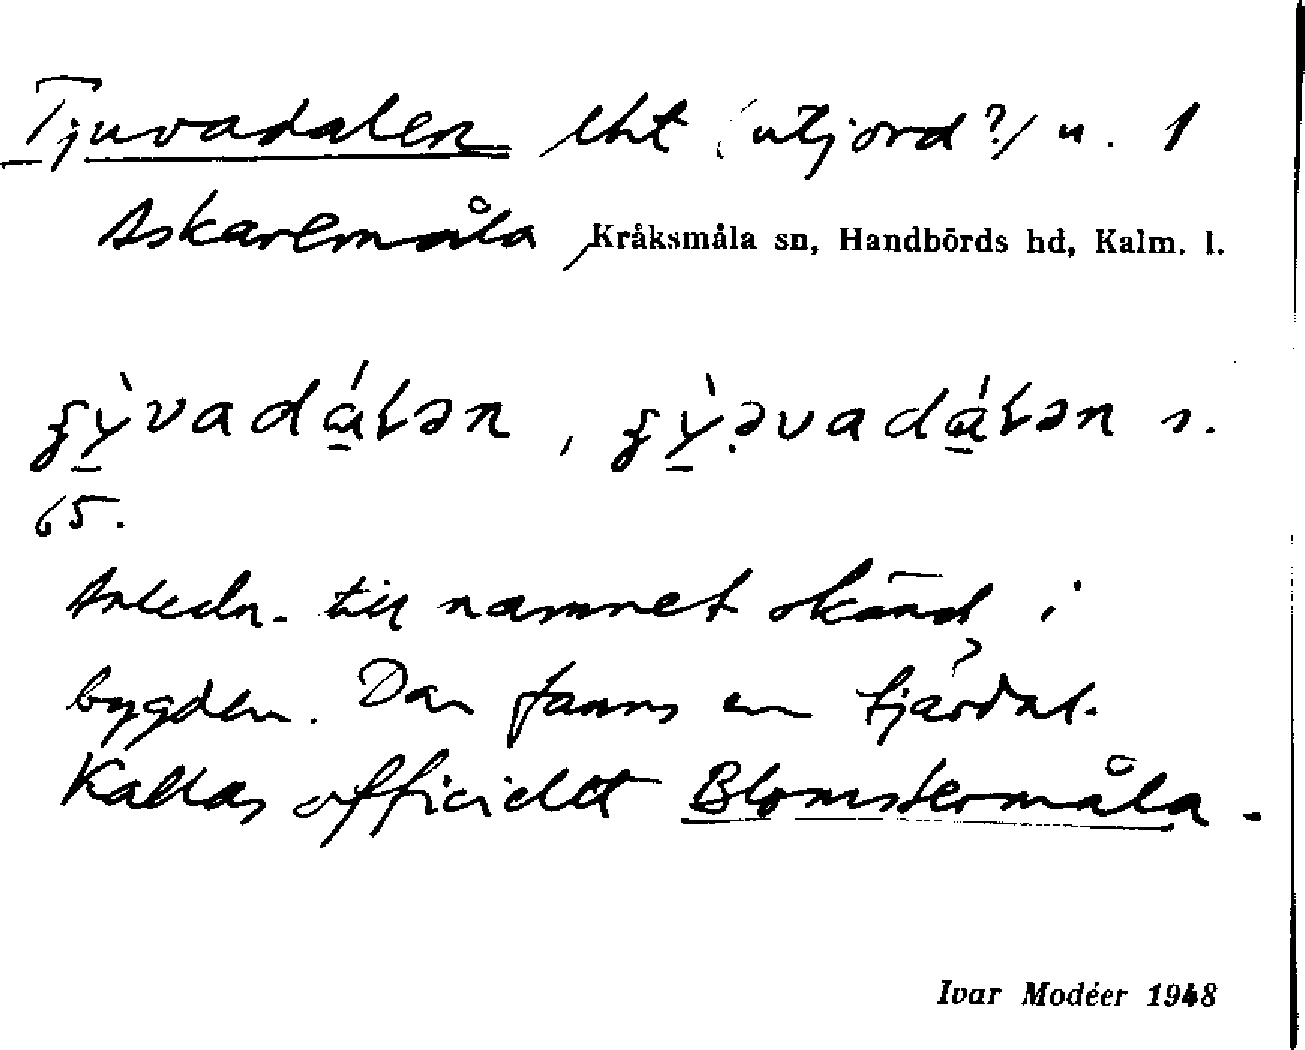 Tjuvadalen lht (utjord?) u. 1
Askaremåla, Kråksmåla sn, Handbörds hd, Kalm. l.
ɕỳ̠vadá̠ɭən, ɕỳ̠əvadá̠ɭən s.
65.
Anledn. till namnet okänd i
bygden. Där fanns en tjärdal.
Kallas officiellt Blomstermåla.
Ivar Modéer 1948